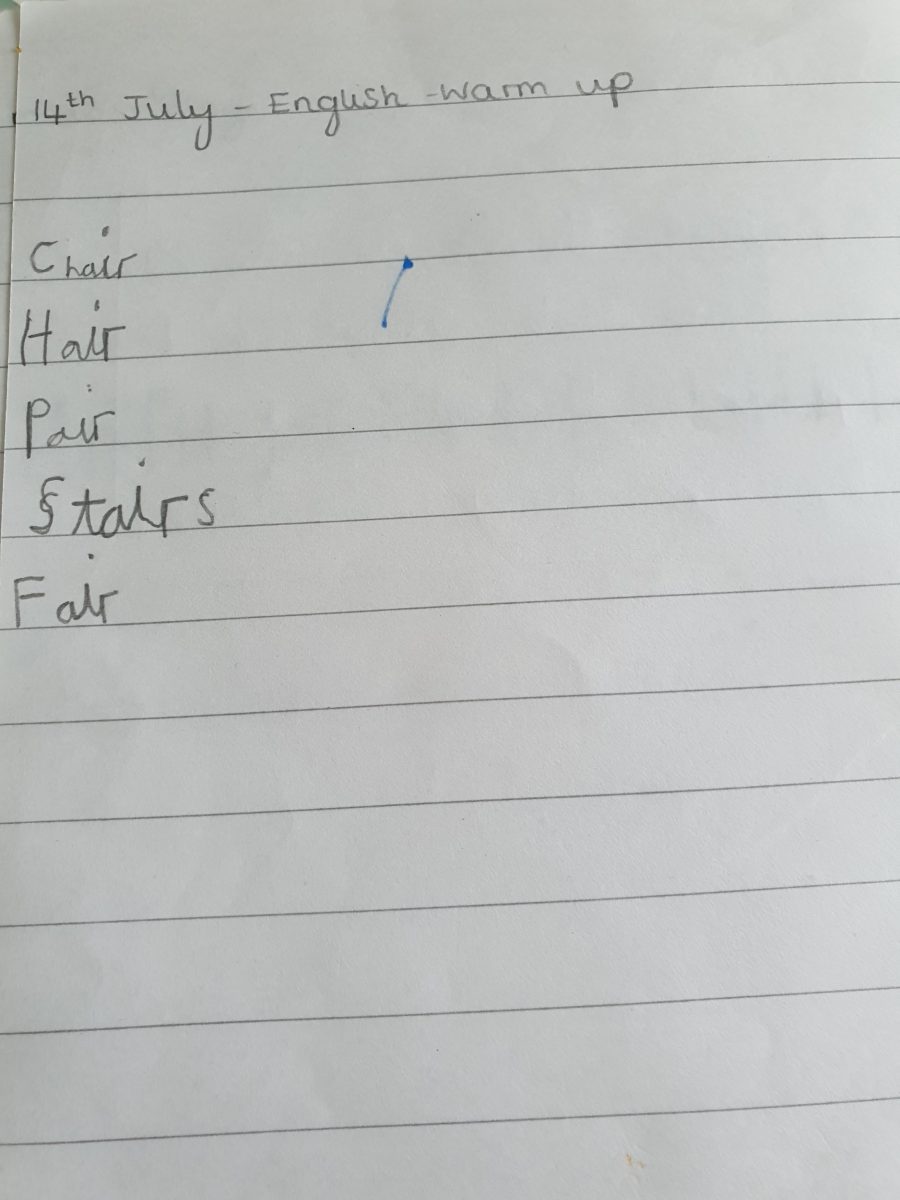 14th July - English - Warm up
Chair
Hair
Pair
Stairs
Fair